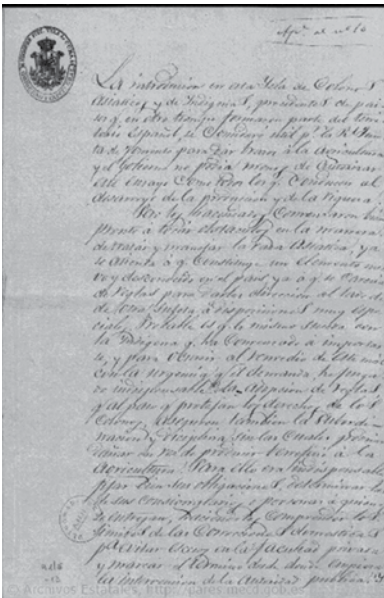 La introduccion en esta Ysla de Colonos
Asiaticos y de Indigenas, procedentes de pai-
ses q. en otro tiempo formaron parte del terri-
torio Español, se consideró util pr. la Rl. Jun-
ta de Fomento para dar brazos á la agricultura
y el Gobierno no podia menos de autorizar
este ensayo como todo lo q. condusca al
desarrollo de la produccion y de la riqueza.
Pero los hacendados comenzaron bien
pronto á tocar obstaculos en la manera
de tratar y manejar la raza Asiatica, ya
se atienda á q. constituye un elemento nue-
vo y desconocido en el pais, ya á q. se carecia
de reglas para darles direccion
sugeta á disposiciones muy espe-
ciales. Probable es q. lo mismo suceda con
la Indigena q. ha comenzado á importar-
se, y para ocurrir al remedio de este mal
con la urgencia q. él demanda, he juzga-
do indispensable la adopcion de reglas
q. al paso q. protejan los derechos de los
Colonos, aseguren tambien la subordi-
nacion y disciplina, sin las cuales podrian
dañar en vez de producir beneficio á la
agricultura. Para ello era indispensable
fijar bien sus obligaciones, determinar las
de sus consignatarios, ó personas á quienes
se entregan,
limites de las correcciones domesticas
pa. evitar exceso en la facultad privada
y marcar el termino desde donde empieza
la intervencion de la Autoridad publica
© Archivos Estatales, http://pares.mecd.gob.es